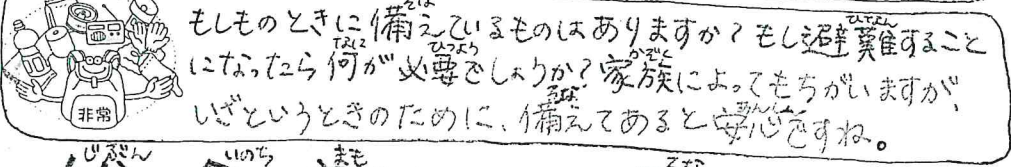 もしものときに備えているものはありますか？もし避難すること
になったら何が必要でしょうか？家族によってもちがいますが、
いざというときのために、備えてあると安心ですね。
非常
じぶん いのち まも